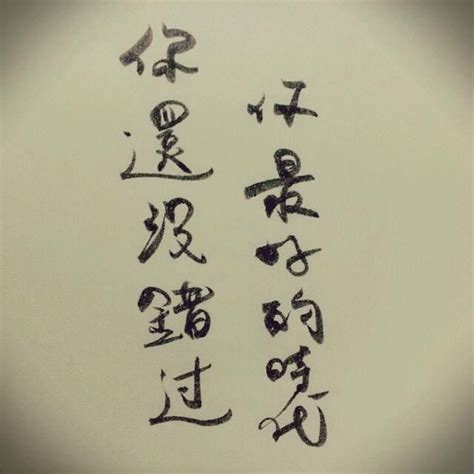 你還没錯过
你最好的時代